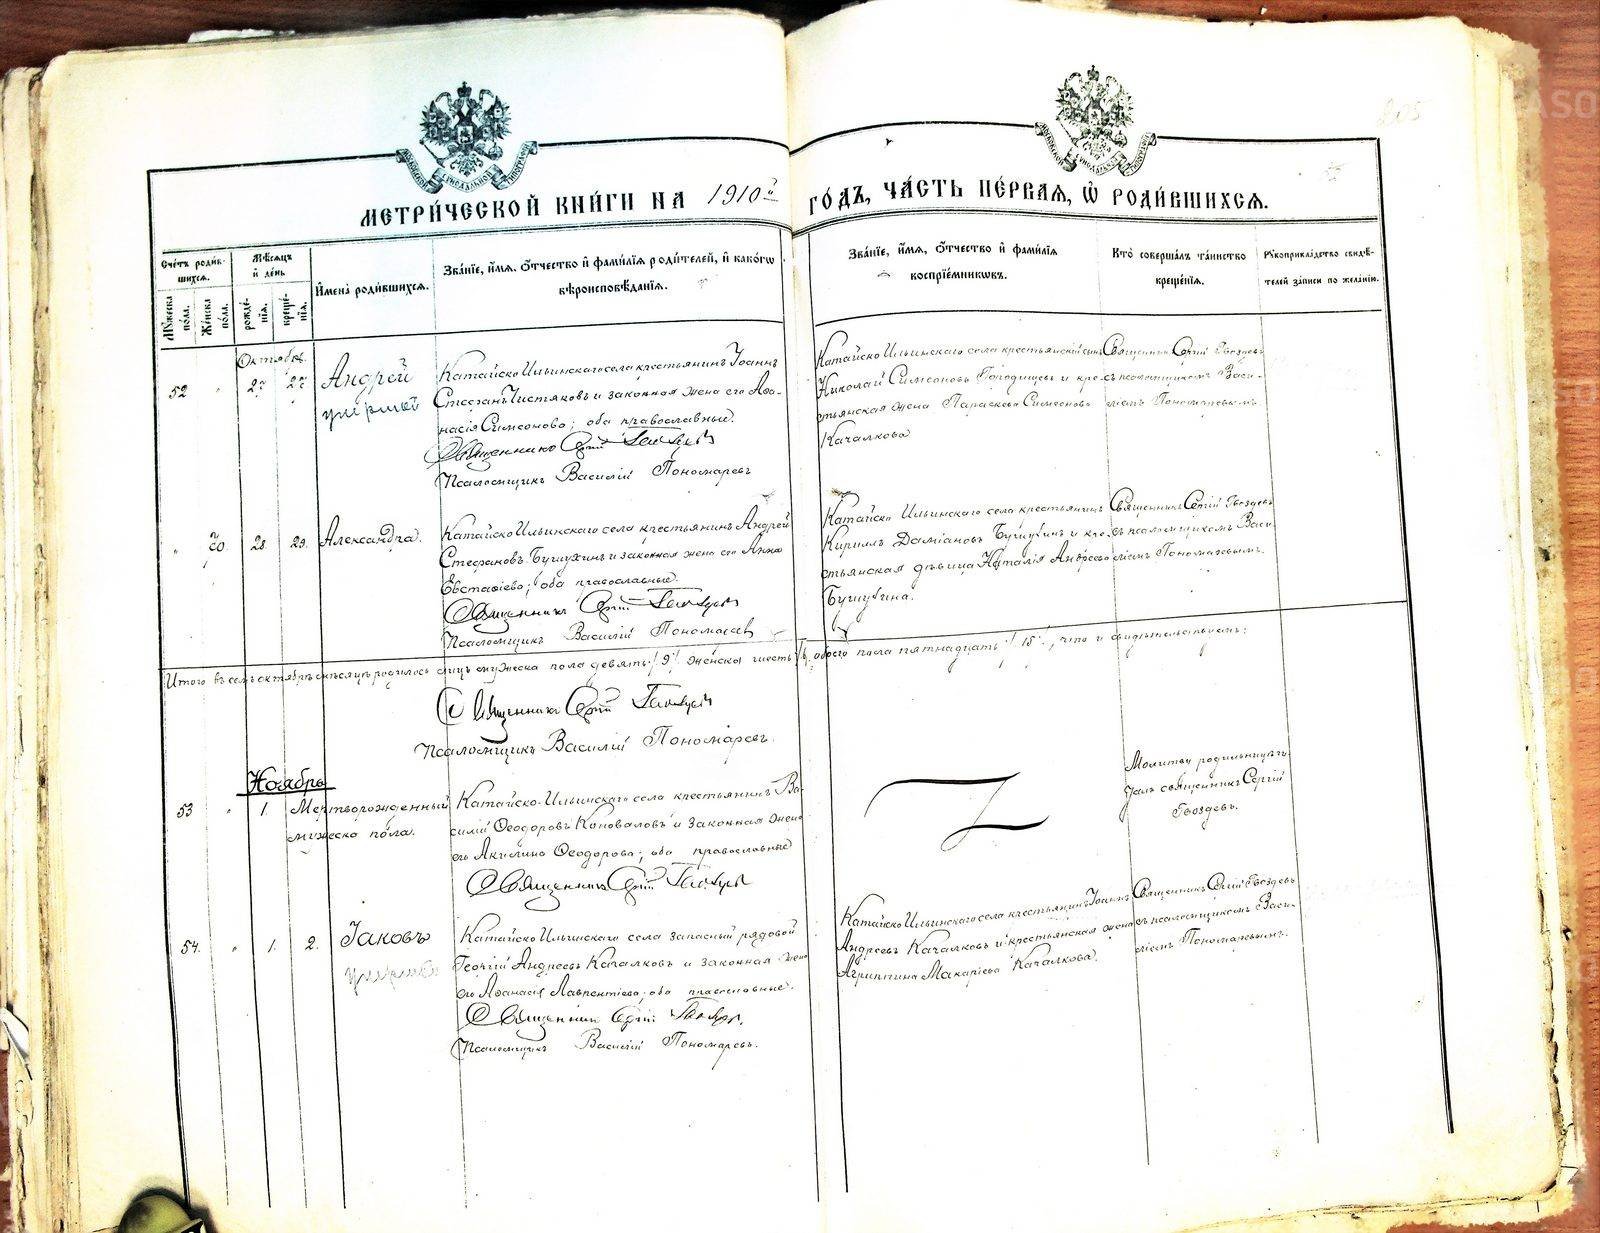 205
МОСКОВСКОЙ СѴНОДАЛЬНОЙ ТИПОГРАФІИ
МОСКОВСКОЙ СѴНОДАЛЬНОЙ ТИПОГРАФІИ
МЕТРИ́ЧЕСКОЙ КНИ́ГИ НА 1910й ГО́ДЪ, ЧА́СТЬ ПЕ́РВАЯ, Ѡ҆ РОДИ́ВШИХСЯ.
Сче́тъ роди́вшихся.
Мꙋ́жеска по́ла.
Же́нска по́ла.
Мѣ́сяцъ и҆ де́нь
рожде́нїя.
креще́нїя.
И҆мена̀ роди́вшихся.
Зва́нїе, и҆́мя, ѻ҆́тчество и҆ фами́лїя роди́телей, и҆ како́гѡ вѣроисповѣ́данїя.
Зва́нїе, и҆́мя, ѻ҆́тчество и҆ фами́лїя воспрїе́мникѡвъ.
Кто̀ соверша́лъ та́инство креще́нїя.
Рꙋкоприкла́дство свидѣ́телей за́писи по жела́нїю.
Октябрь
52 " 27 27
Андрей
умерший
Катайско Ильинскаго села крестьянинъ Іоаннъ
Стефан. Чистяковъ и законная жена его Аѳа-
насія Симеонова; оба православные.
Священникъ Сергій Гвоздевъ
Псаломщикъ Василій Пономаревъ
Катайско Ильинскаго села крестьянскій сынъ
Николай Симеоновъ Городищевъ и кре-
стьянская жена Параскева Симеонова
Качалкова
Священник Сергій Гвоздевъ
съ псаломщикомъ Васи-
ліемъ Пономаревымъ
" 20 28 29.
Александра.
Катайско Ильинскаго села крестьянинъ Андрей
Стефановъ Бушухинъ и законная жена его Анна
Евстафіева; оба православные.
Священникъ Сергій Гвоздевъ
Псаломщикъ Василій Пономаревъ
Катайско Ильинскаго села крестьянинъ
Кириллъ Даміановъ Бушухинъ и кре-
стьянская дѣвица Наталія Андреева
Бушухина.
Священникъ Сергій Гвоздевъ
съ псаломщикомъ Васи
ліемъ Пономаревымъ.
Итого въ семъ октябрѣ мѣсяцѣ родилось лицъ мужеска пола девять /9/ женска шесть /6/ обоего пола пятнадцать /15/, что и свидѣтельствуемъ:
Священникъ Сергій Гвоздевъ
Псаломщикъ Василій Пономаревъ.
Ноябрь
53 " 1.
Мертворожденный
мужеска пола.
Катайско-Ильинскаго села крестьянинъ Ва-
силій Ѳеодоровъ Коноваловъ и законная жена
его Акилина Ѳеодорова; оба православные
Священникъ Сергій Гвоздевъ
Молитву родильницѣ чи-
талъ священникъ Сергій
Гвоздевъ.
54. " 1. 2.
Іаковъ
умерший
Катайско Ильинскаго села запасный рядовой
Георгій Андреевъ Качалковъ и законная жена
его Аѳанасія Лаврентіева; оба православные.
Священникъ Сергій Гвоздевъ.
Псаломщикъ Василій Пономаревъ.
Катайско Ильинскаго села крестьянинъ Іоаннъ
Андреевъ Качалковъ и крестьянская жена
Агриппина Макаріева Качалкова.
Священникъ Сергій Гвоздевъ
съ псаломщикомъ Васи-
ліемъ Пономаревымъ.